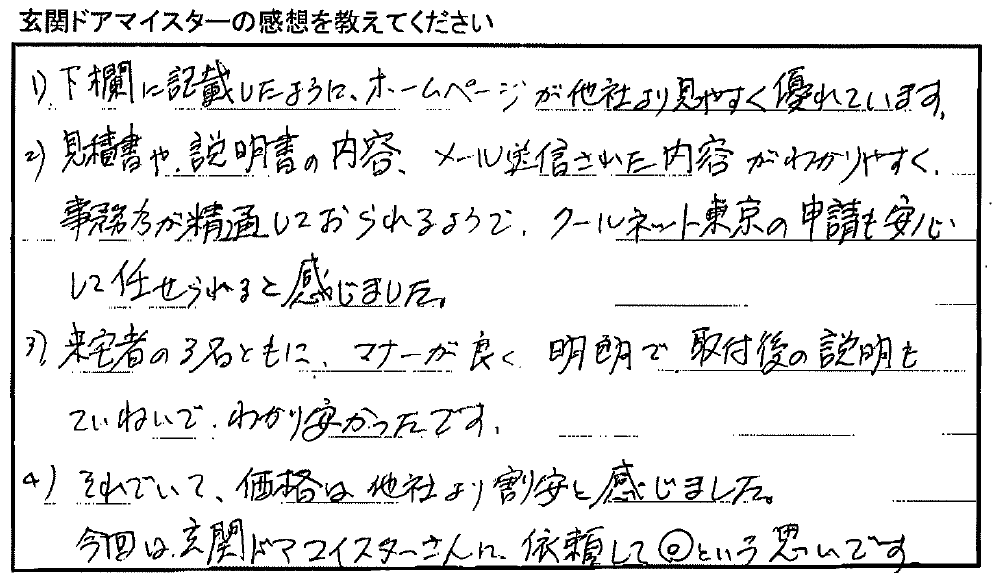 玄関ドアマイスターの感想を教えてください
1) 下欄に記載したように、ホームページが他社より見やすく優れています。
2) 見積書や、説明書の内容、メール送信された内容がわかりやすく、
事務方が精通しておられるようで、クールネット東京の申請も安心
して任せられると感じました。
3) 来宅者の3名ともに、マナーが良く、明朗で、取付後の説明も
ていねいで、わかり安かったです。
4) それでいて、価格は他社より割安と感じました。
今回は、玄関ドアマイスターさんに、依頼して◎という思いです。